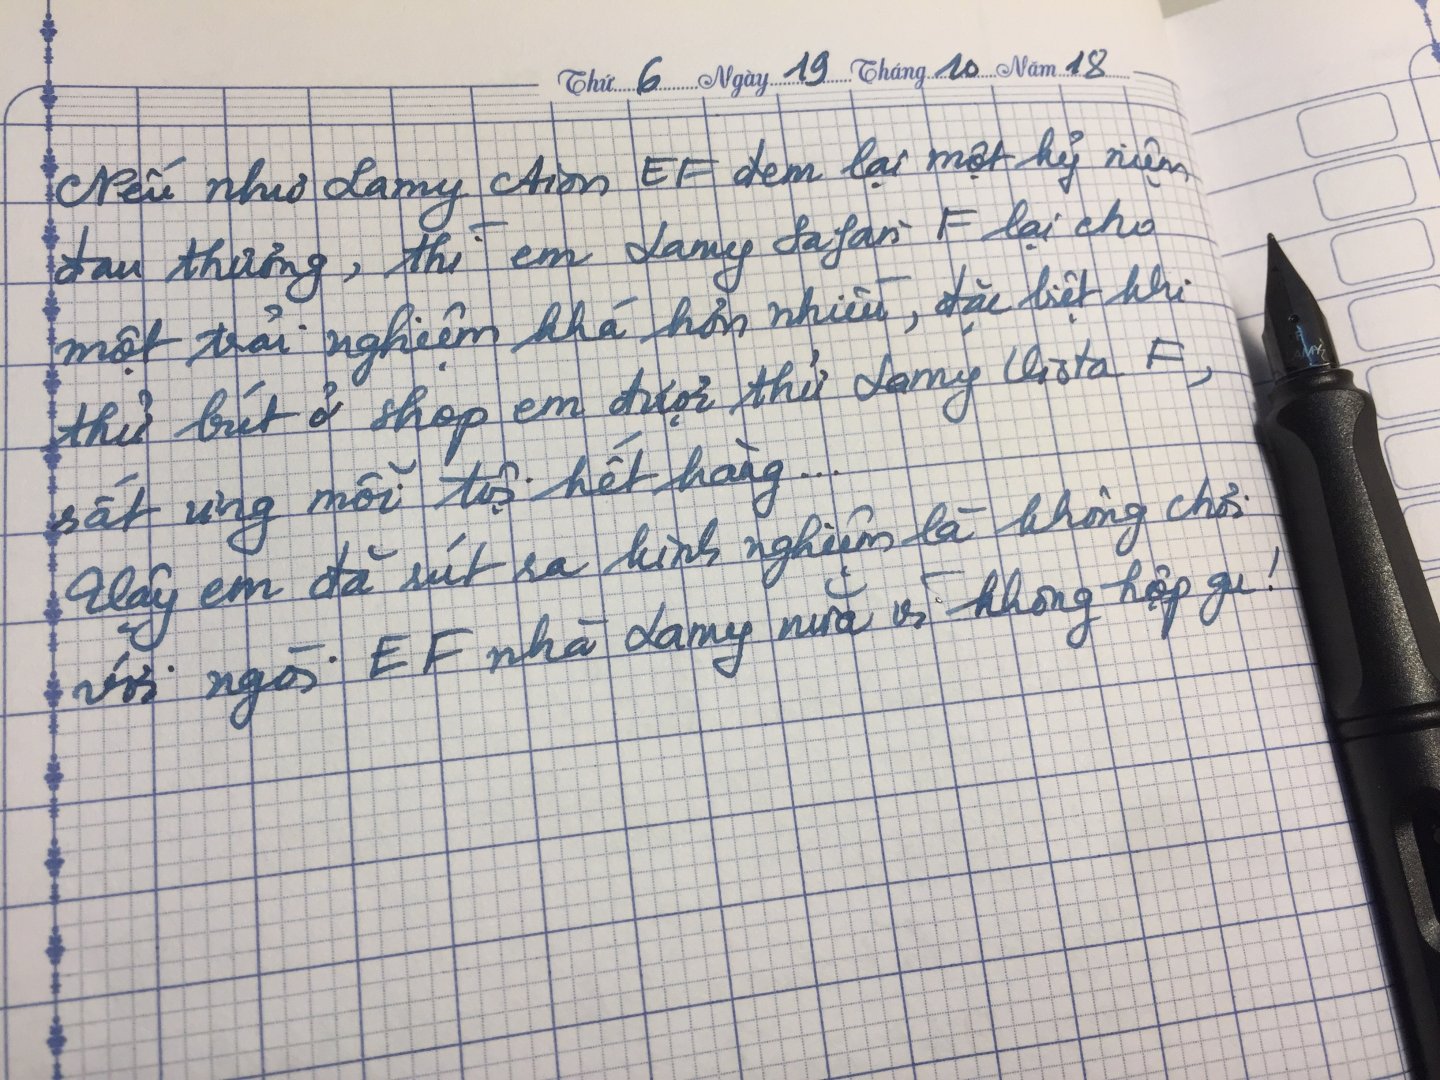 Thứ 6 Ngày 19 Tháng 10 Năm 18
Nếu như Lamy Aion EF đem lại một kỷ niệm
đau thương, thì em Lamy Safari F lại cho
một trải nghiệm khá hơn nhiều, đặc biệt khi
thử bút ở shop em được thử Lamy Vista F,
rất ưng mỗi tội hết hàng...
Vậy em đã rút ra kinh nghiệm là không chơi
với ngòi EF nhà Lamy nữa vì không hợp gu!
F
LAMY